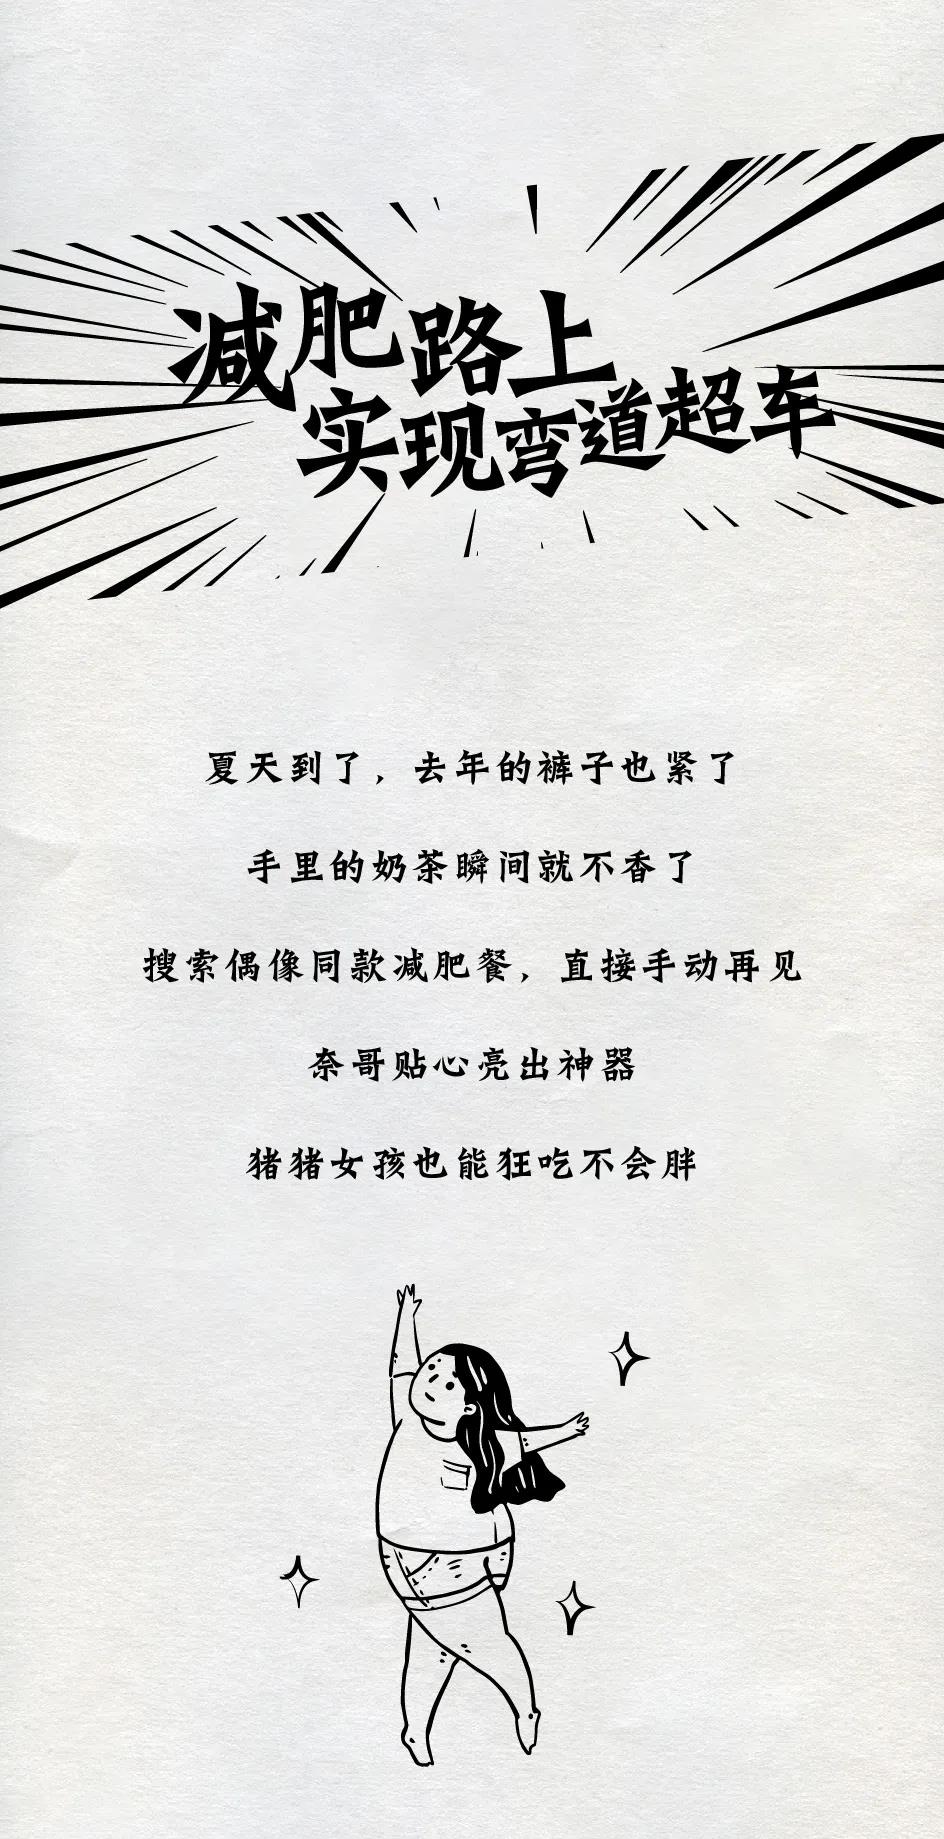 减肥路上
实现弯道超车
夏天到了，去年的裤子也紧了
手里的奶茶瞬间就不香了
搜索偶像同款减肥餐，直接手动再见
奈哥贴心亮出神器
猪猪女孩也能狂吃不会胖